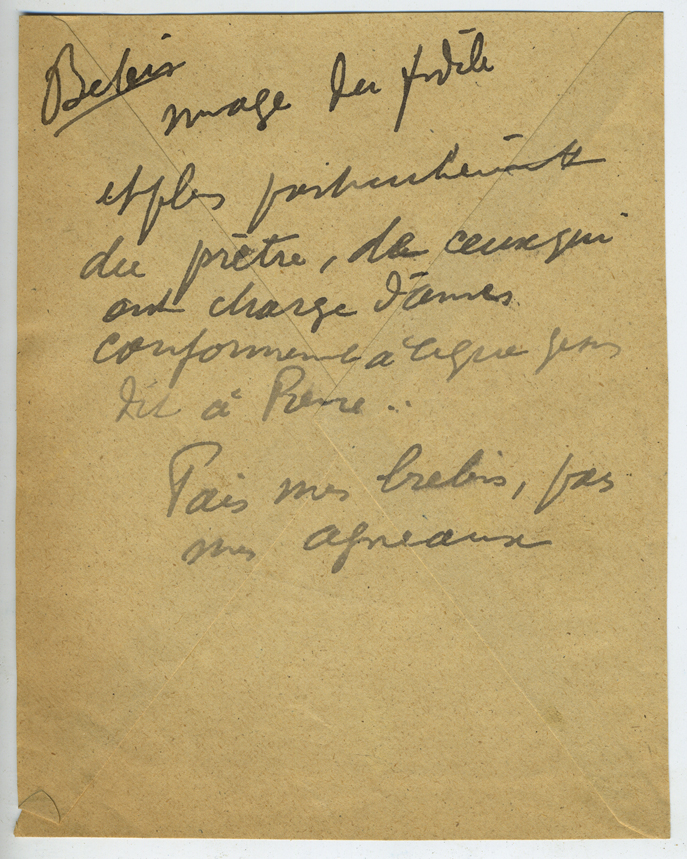 Bebis
image du fidèle
et plus particulièrement
du prêtre, de ceux qui
ont charge d'âmes
conformement à ce que Jesus
dit à Pierre ..
Pais mes brebis, pais
mes agneaux